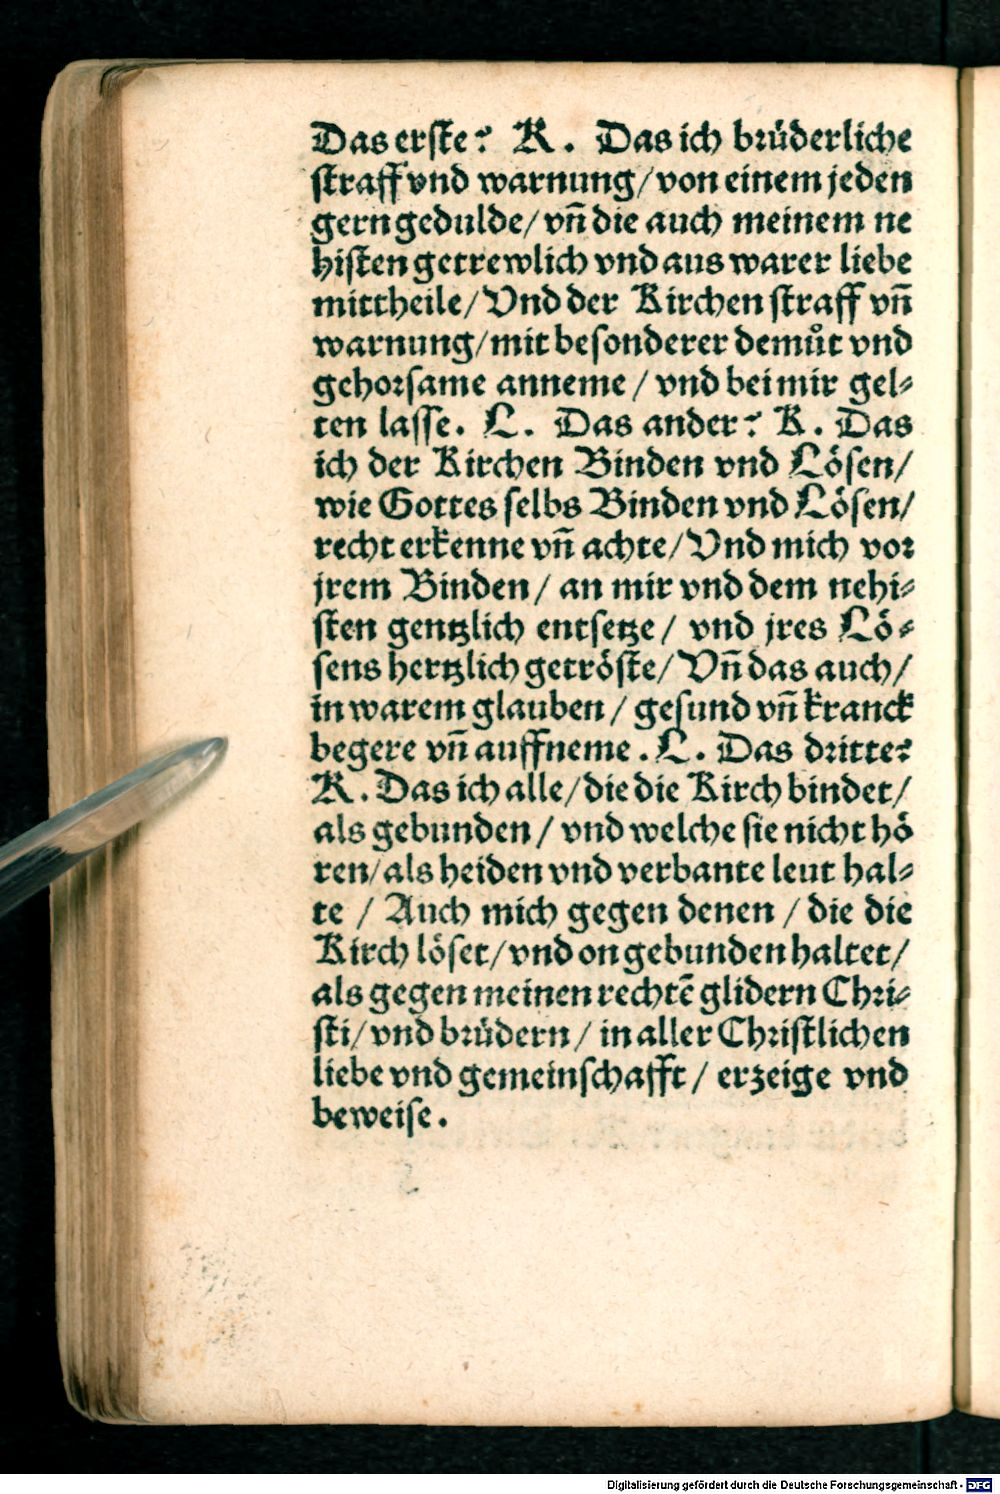 Das erste? K. Das ich brüderliche
straff vnd warnung/ von einem jeden
gern gedulde/ vñ die auch meinem ne
histen getrewlich vnd aus warer liebe
mittheile/ Vnd der Kirchen straff vñ
warnung/ mit besonderer demůt vnd
gehorsame anneme / vnd bei mir gel⸗
ten lasse. L. Das ander? K. Das
ich der Kirchen Binden vnd Lösen/
wie Gottes selbs Binden vnd Lösen/
recht erkenne vñ achte/ Vnd mich vor
jrem Binden / an mir vnd dem nehi⸗
sten gentzlich entsetze / vnd jres Lö⸗
sens hertzlich getröste/ Vñ das auch/
in warem glauben / gesund vñ kranck
begere vñ auffneme. L. Das dritte?
K. Das ich alle/ die die Kirch bindet/
als gebunden / vnd welche sie nicht hö
ren/ als heiden vnd verbante leut hal⸗
te / Auch mich gegen denen / die die
Kirch löset/ vnd on gebunden haltet/
als gegen meinen rechtē glidern Chri⸗
sti/ vnd brüdern / in aller Christlichen
liebe vnd gemeinschafft / erzeige vnd
beweise.
Digitalisierung gefördert durch die Deutsche Forschungsgemeinschaft - DFG